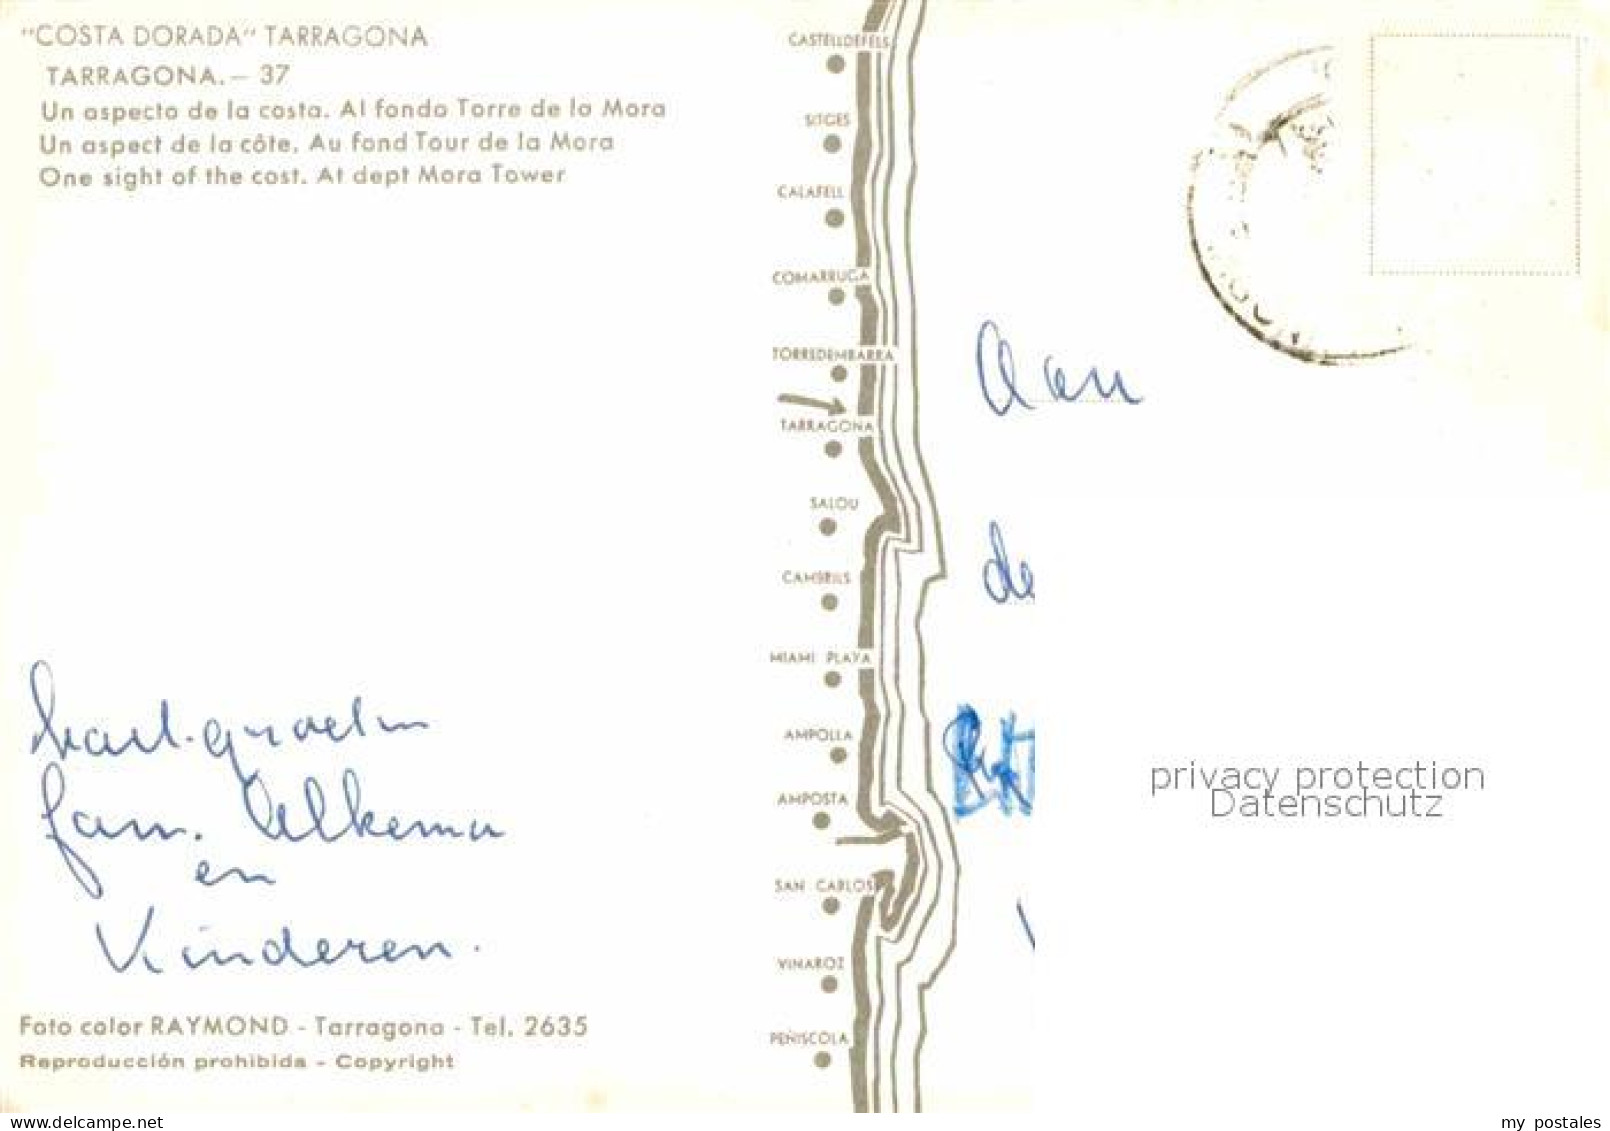 "COSTA DORADA" TARRAGONA
TARRAGONA.— 37
Un aspecto de la costa. Al fondo Torre de la Mora
Un aspect de la côte. Au fond Tour de la Mora
One sight of the cost. At dept Mora Tower
hart. groeten
fam. Alkema
en
Kinderen.
Foto color RAYMOND - Tarragona - Tel. 2635
Reproducción prohibida - Copyright
CASTELLDEFELS
SITGES
CALAFELL
COMARRUGA
TORREDEMBARRA
TARRAGONA
SALOU
CAMBRILS
MIAMI PLAYA
AMPOLLA
AMPOSTA
SAN CARLOS
VINAROZ
PEÑISCOLA
Aan
de
privacy protection
Datenschutz
delcampe.net
my_postales